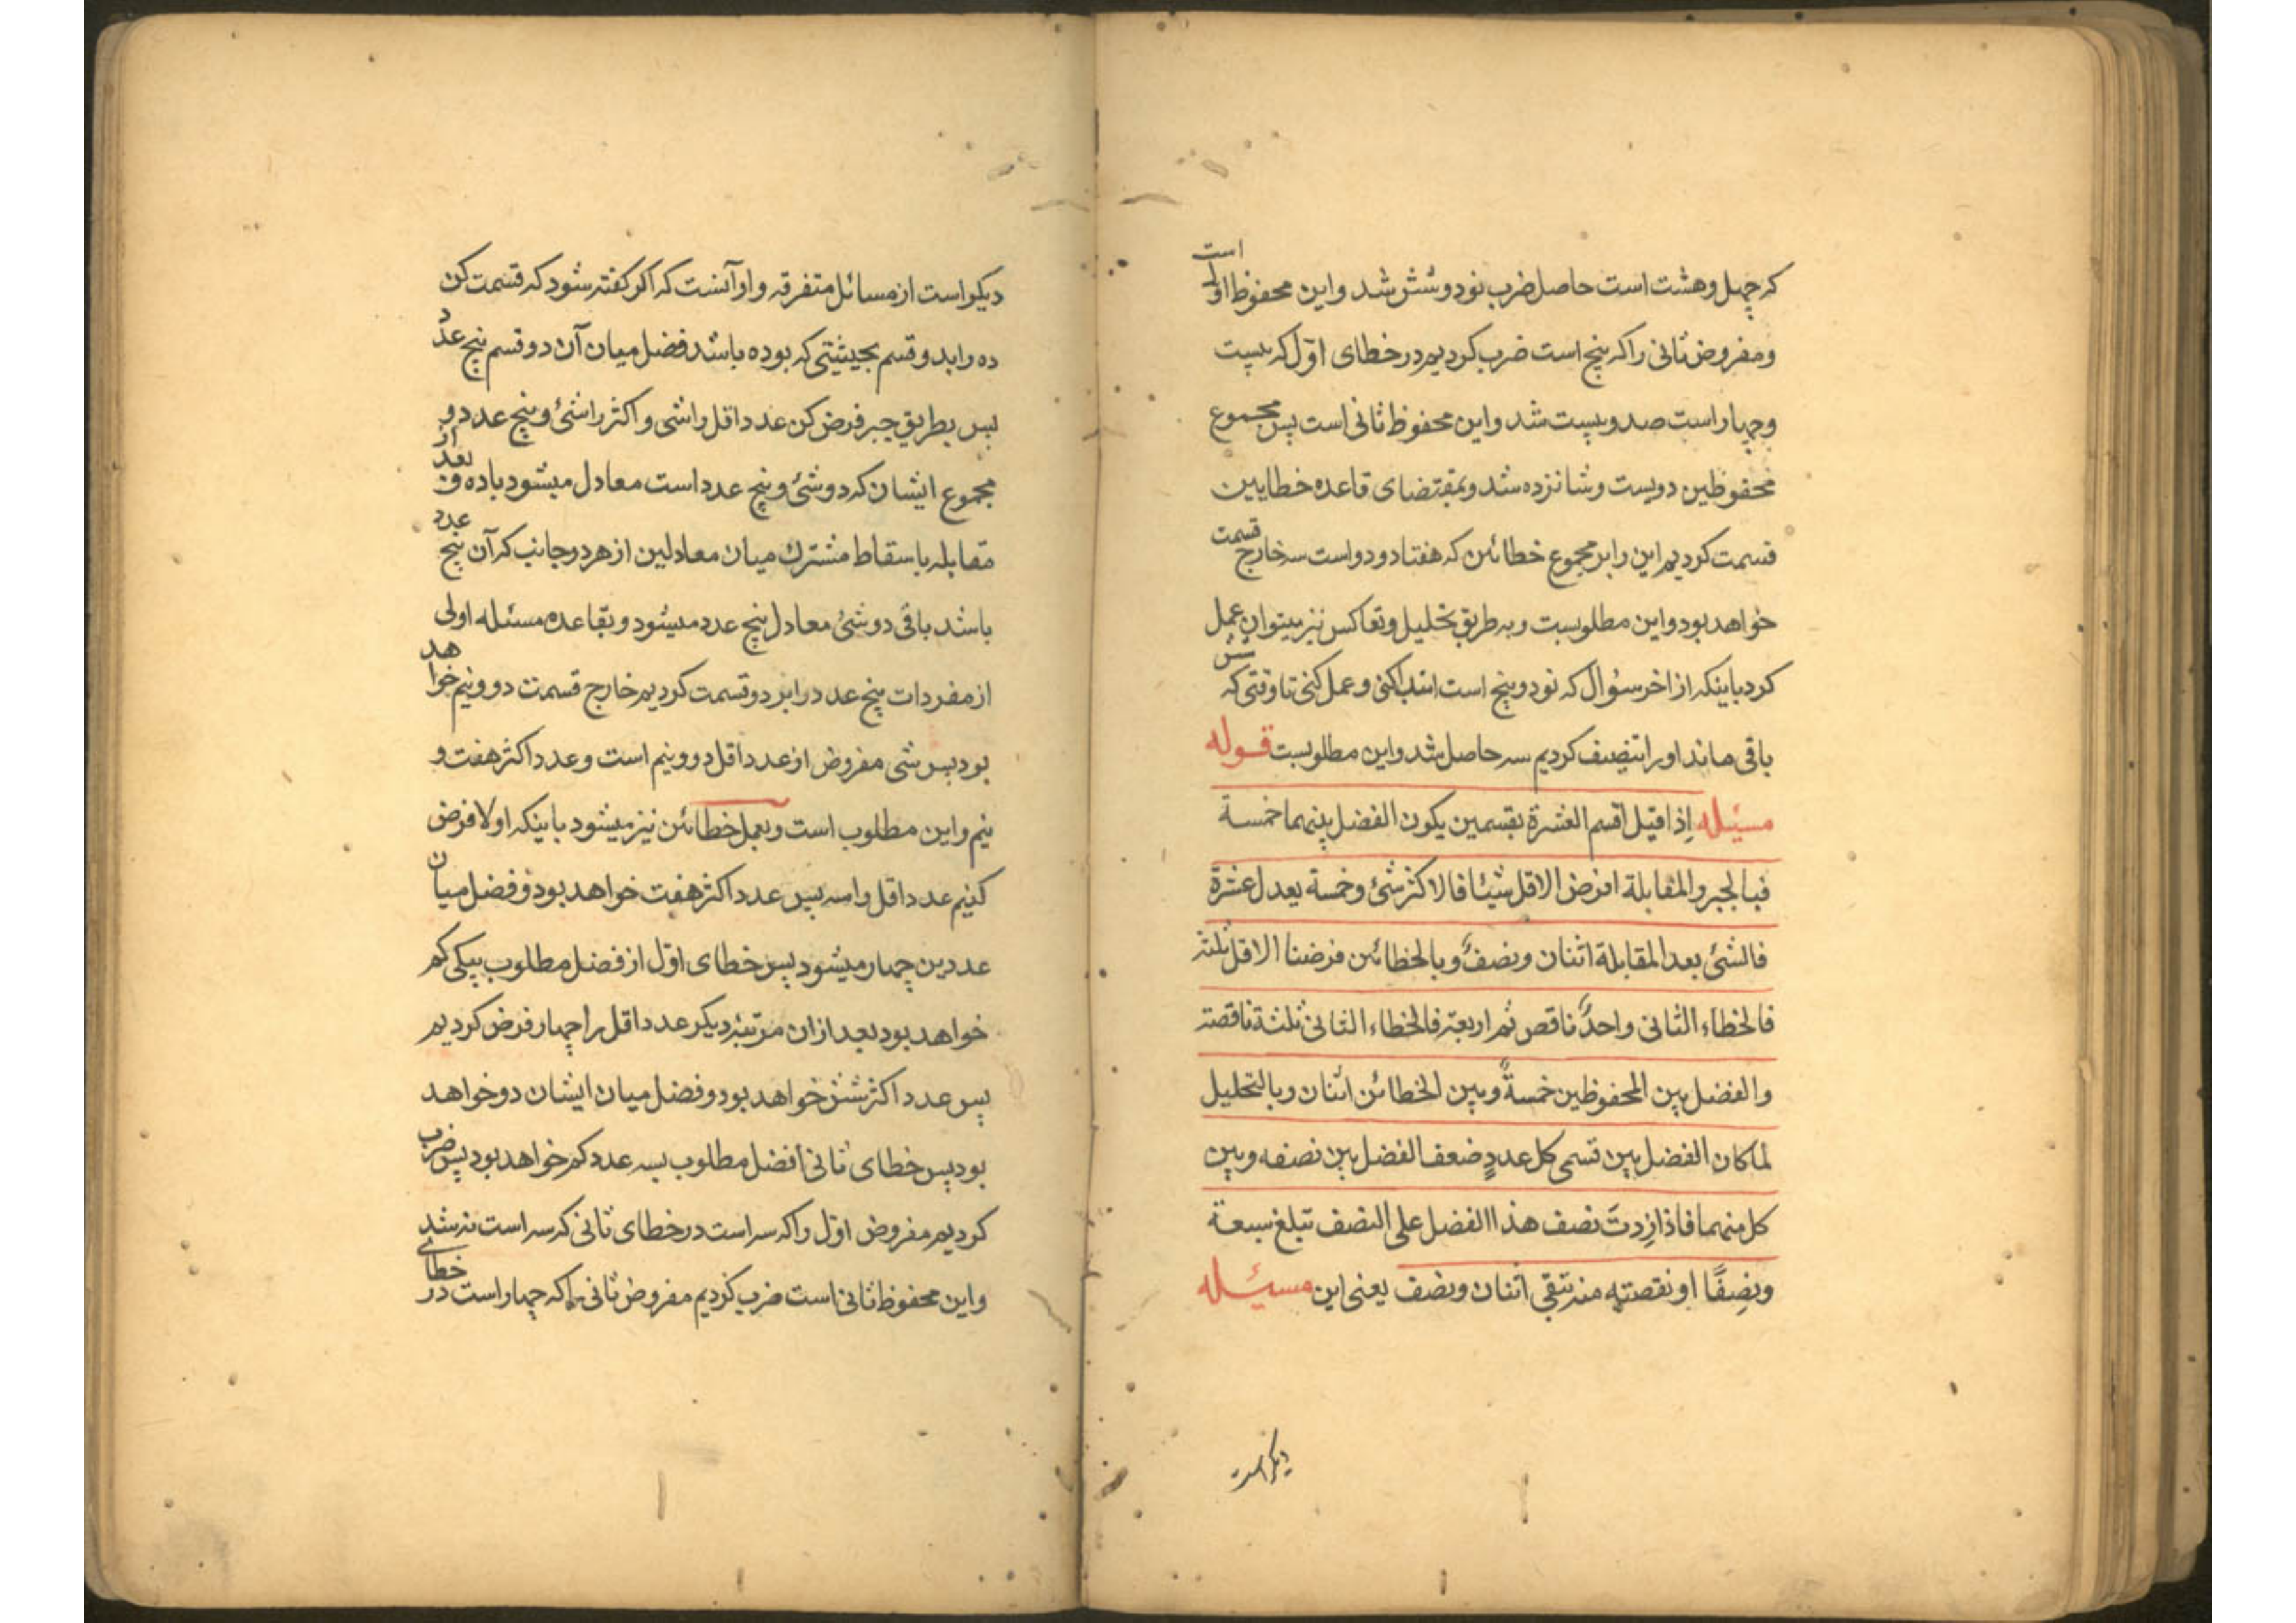 که چهل و هشت است حاصل ضرب نود و شش شد و این محفوظ اول است
و مفروض ثانی را که پنج است ضرب کردیم در خطای اوّل که بیست
و چهار است صد و بیست شد و این محفوظ ثانی است پس مجموع
محفوظین دویست و شانزده شد و بمقتضای قاعده خطایین
قسمت کردیم این را بر مجموع خطائین که هفتاد و دو است سه خارج قسمت
خواهد بود و این مطلوبست و به طریق تحلیل و تعاکس نیز میتوان عمل
کرد باینکه از اخر سؤال که نود و پنج است ابتدا کنی و عمل کنی تا وقتی که شش
باقی ماند او را تنصیف کردیم سه حاصل شد و این مطلوبست قوله
مسئله إذا قیل اقسم العشرة بقسمین یکون الفضل بینهما خمسة
فبالجبر والمقابلة افرض الاقل شیئا فالاکثر شئ وخمسة یعدل عشرة
فالشئ بعد المقابلة اثنان ونصفٌ وبالخطائین فرضنا الاقل ثلثة
فالخطاء الثانی واحدٌ ناقص ثم اربعة فالخطاء الثانی ثلثة ناقصة
والفضل بین المحفوظین خمسةٌ وبین الخطائین اثنان وبالتحلیل
لما کان الفضل بین قسمی کل عددٍ ضعف الفضل بین نصفه وبین
کل منهما فاذا زدتَ نصف هذا الفضل علی النصف تبلغ سبعة
ونصِفًا او نقصته منه تبقی اثنان ونصف یعنی این مسئله
دیکر است
دیکر است از مسائل متفرقه و او آنست که اکر کفته شود که قسمت کن
ده را بدو قسم بحیثیتی که بوده باشد فضل میان آن دو قسم پنج عدد
پس بطریق جبر فرض کن عدد اقل را شی و اکثر را شئ و پنج عدد و
مجموع ایشان که دو شئ و پنج عدد است معادل میشود با ده و بعد از
مقابله باسقاط مشترک میان معادلین از هر دو جانب که آن پنج عدد
باشد باقی دو شئ معادل پنج عدد میشود و بقاعده مسئله اولی
از مفردات پنج عدد را بر دو قسمت کردیم خارج قسمت دو و نیم خواهد
بود پس شی مفروض از عدد اقل دو و نیم است و عدد اکثر هفت و
نیم و این مطلوب است و بعمل خطائین نیز میشود باینکه اولا فرض
کنیم عدد اقل را سه پس عدد اکثر هفت خواهد بود و فضل میان
عددین چهار میشود پس خطای اوّل از فضل مطلوب بیکی کم
خواهد بود بعد از ان مرتبهٔ دیکر عدد اقل را چهار فرض کردیم
پس عدد اکثر شش خواهد بود و فضل میان ایشان دو خواهد
بود پس خطای ثانی از فضل مطلوب بسه عدد کم خواهد بود پس ضرب
کردیم مفروض اوّل را که سه است در خطای ثانی که سه است نه شد
و این محفوظ ثانی است ضرب کردیم مفروض ثانی را که چهار است در خطای